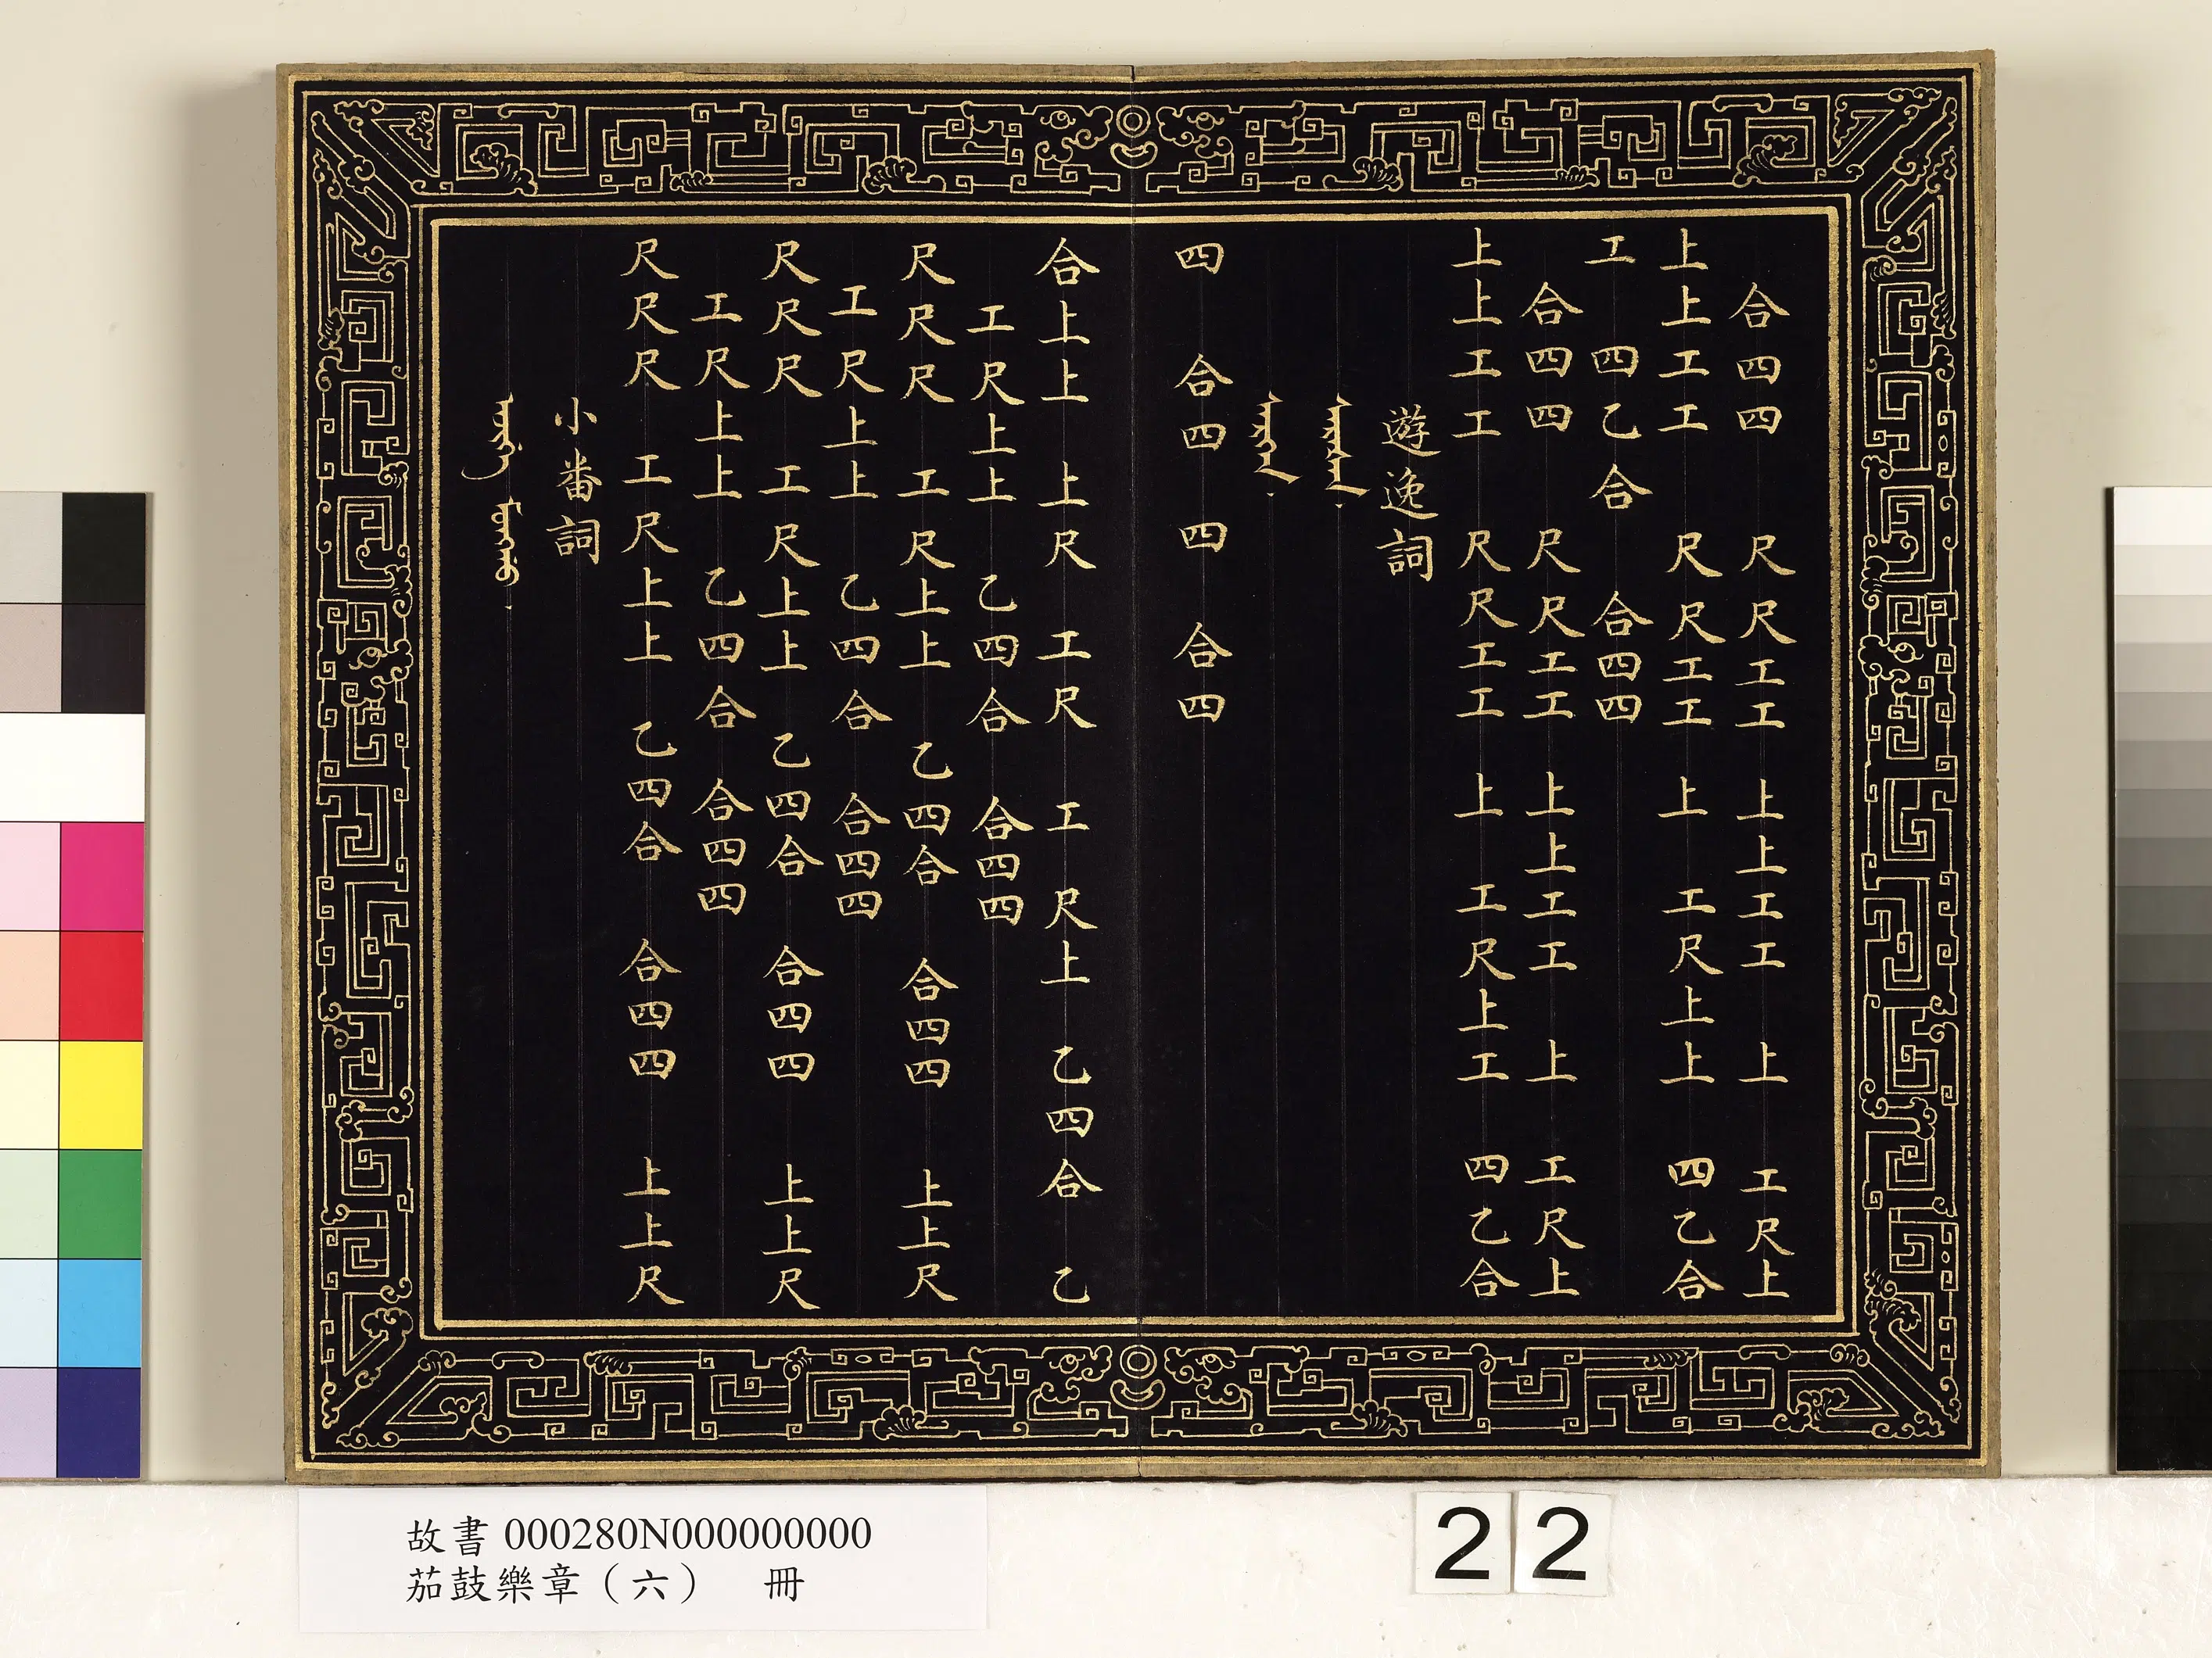 合四四 尺尺工工 上上工工 上 工尺上
上上工工 尺尺工工 上 工尺上上 四乙合
工 四乙合 合四四
合四四 尺尺工工 上上工工 上 工尺上
上上工工 尺尺工工 上 工尺上工 四乙合
遊逸詞
四 合四 四 合四
合上上 上尺 工尺 工 尺上 乙四合 乙
工尺上上 乙四合 合四四
尺尺尺 工尺上上 乙四合 合四四 上上尺
工尺上上 乙四合 合四四
尺尺尺 工尺上上 乙四合 合四四 上上尺
工尺上上 乙四合 合四四
尺尺尺 工尺上上 乙四合 合四四 上上尺
小番詞
故書 000280N000000000
茄鼓樂章（六） 冊
22